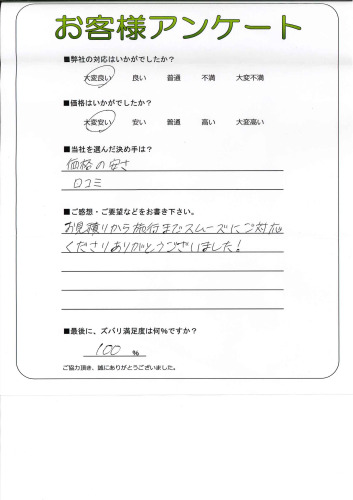 お客様アンケート
■弊社の対応はいかがでしたか?
大変良い 良い 普通 不満 大変不満
■価格はいかがでしたか?
大変安い 安い 普通 高い 大変高い
■当社を選んだ決め手は?
価格の安さ
口コミ
■ご感想・ご要望などをお書き下さい。
お見積りから施行までスムーズにご対応
くださりありがとうございました!
■最後に、ズバリ満足度は何%ですか?
100 %
ご協力頂き、誠にありがとうございました。